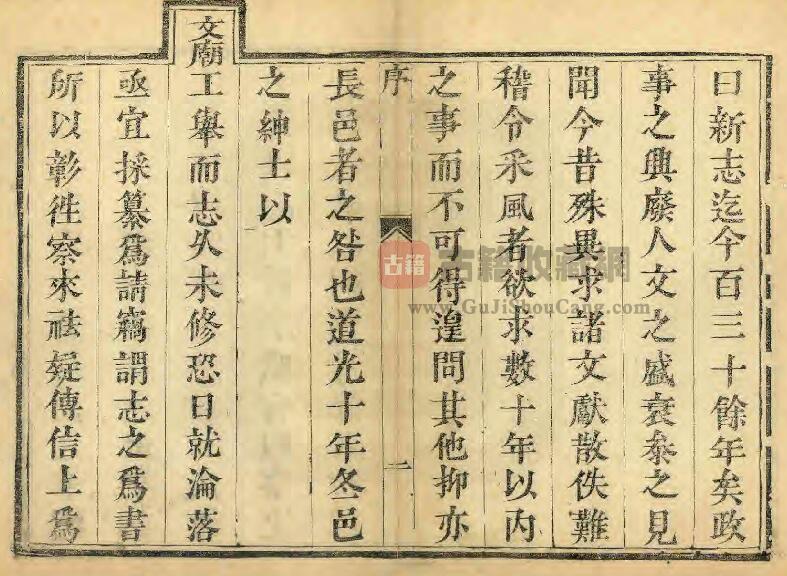 曰新志迄今百三十餘年矣政
事之興廢人文之盛衰叅之見
聞今昔殊異求諸文獻散佚難
稽令釆風者欲求數十年以内
之事而不可得遑問其他抑亦
序
二
長邑者之咎也道光十年冬邑
之紳士以
文廟工舉而志久未修恐日就淪落
亟宜採纂爲請竊謂志之爲書
所以彰徃察來祛疑傳信上爲
古籍
古籍收藏網
www.GuJiShouCang.com